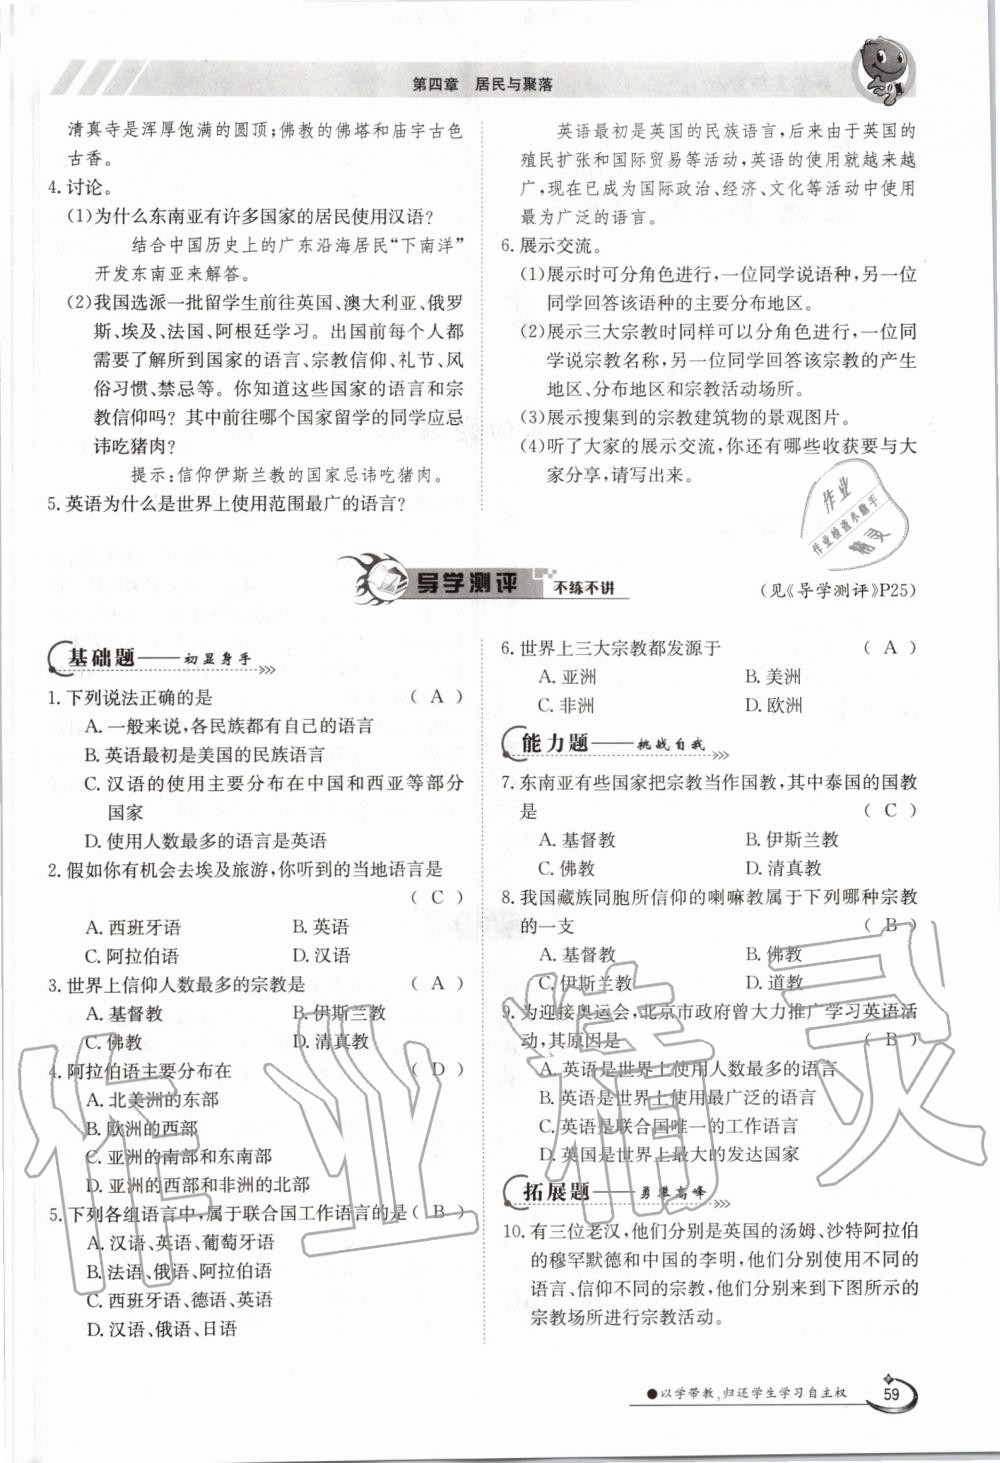 第四章 居民与聚落
清真寺是浑厚饱满的圆顶;佛教的佛塔和庙宇古色
古香。
4. 讨论。
(1)为什么东南亚有许多国家的居民使用汉语?
结合中国历史上的广东沿海居民“下南洋”
开发东南亚来解答。
(2)我国选派一批留学生前往英国、澳大利亚、俄罗
斯、埃及、法国、阿根廷学习。出国前每个人都
需要了解所到国家的语言、宗教信仰、礼节、风
俗习惯、禁忌等。你知道这些国家的语言和宗
教信仰吗?其中前往哪个国家留学的同学应忌
讳吃猪肉?
提示:信仰伊斯兰教的国家忌讳吃猪肉。
5. 英语为什么是世界上使用范围最广的语言?
英语最初是英国的民族语言,后来由于英国的
殖民扩张和国际贸易等活动,英语的使用就越来越
广,现在已成为国际政治、经济、文化等活动中使用
最为广泛的语言。
6. 展示交流。
(1)展示时可分角色进行,一位同学说语种,另一位
同学回答该语种的主要分布地区。
(2)展示三大宗教时同样可以分角色进行,一位同
学说宗教名称,另一位同学回答该宗教的产生
地区、分布地区和宗教活动场所。
(3)展示搜集到的宗教建筑物的景观图片。
(4)听了大家的展示交流,你还有哪些收获要与大
家分享,请写出来。
作业
作业检查小助手
精灵
导学测评 不练不讲
(见《导学测评》P25)
基础题——初显身手
1. 下列说法正确的是 ( A )
A. 一般来说,各民族都有自己的语言
B. 英语最初是美国的民族语言
C. 汉语的使用主要分布在中国和西亚等部分
国家
D. 使用人数最多的语言是英语
2. 假如你有机会去埃及旅游,你听到的当地语言是
( C )
A. 西班牙语 B. 英语
C. 阿拉伯语 D. 汉语
3. 世界上信仰人数最多的宗教是 ( A )
A. 基督教 B. 伊斯兰教
C. 佛教 D. 清真教
4. 阿拉伯语主要分布在 ( D )
A. 北美洲的东部
B. 欧洲的西部
C. 亚洲的南部和东南部
D. 亚洲的西部和非洲的北部
5. 下列各组语言中,属于联合国工作语言的是( B )
A. 汉语、英语、葡萄牙语
B. 法语、俄语、阿拉伯语
C. 西班牙语、德语、英语
D. 汉语、俄语、日语
6. 世界上三大宗教都发源于 ( A )
A. 亚洲 B. 美洲
C. 非洲 D. 欧洲
能力题——挑战自我
7. 东南亚有些国家把宗教当作国教,其中泰国的国教
是 ( C )
A. 基督教 B. 伊斯兰教
C. 佛教 D. 清真教
8. 我国藏族同胞所信仰的喇嘛教属于下列哪种宗教
的一支 ( B )
A. 基督教 B. 佛教
C. 伊斯兰教 D. 道教
9. 为迎接奥运会,北京市政府曾大力推广学习英语活
动,其原因是 ( B )
A. 英语是世界上使用人数最多的语言
B. 英语是世界上使用最广泛的语言
C. 英语是联合国唯一的工作语言
D. 英国是世界上最大的发达国家
拓展题——勇攀高峰
10. 有三位老汉,他们分别是英国的汤姆、沙特阿拉伯
的穆罕默德和中国的李明,他们使用不同的
语言、信仰不同的宗教,他们分别来到下图所示的
宗教场所进行宗教活动。
作业精灵
●以学带教,归还学生学习自主权
59